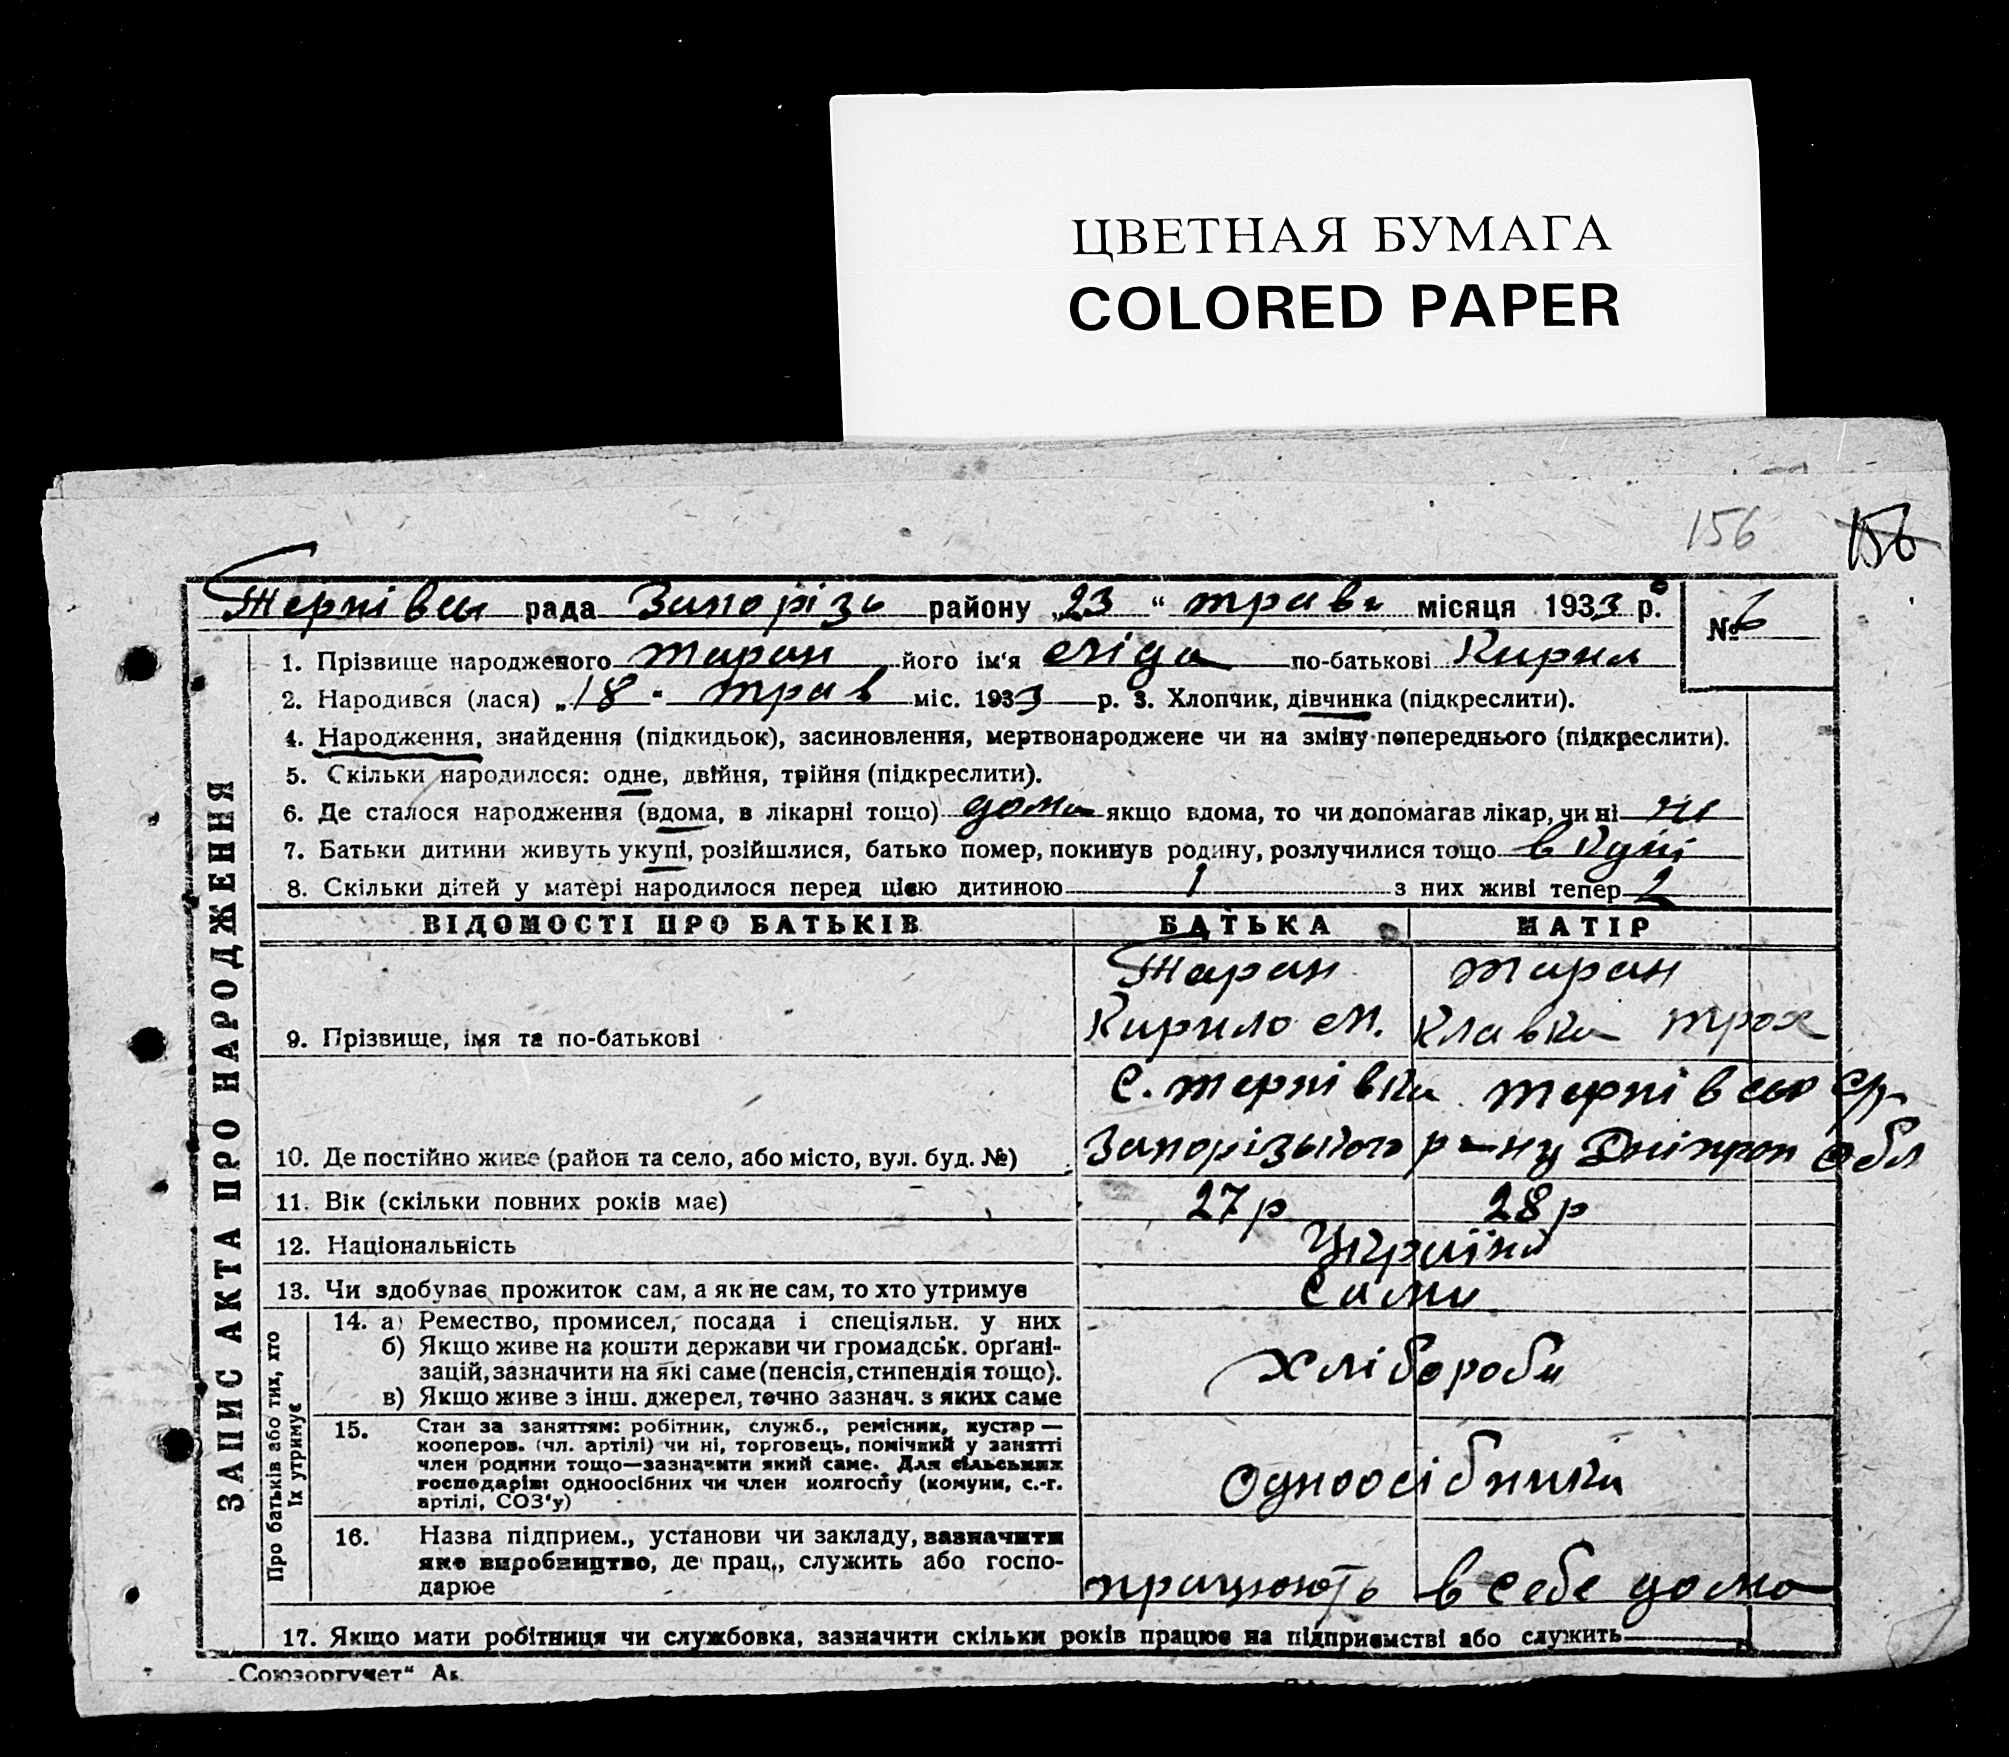 ЦВЕТНАЯ БУМАГА
COLORED PAPER
156 156
Терпівськ рада Запорізь району „23“ травн місяця 1933 р.
№ 6
ЗАПИС АКТА ПРО НАРОДЖЕННЯ
1. Прізвище народженого Таран його ім‘я Ліда по-батькові Кирил
2. Народився (лася) „18 " трав міс. 1933 р. 3. Хлопчик, дівчинка (підкреслити).
4. Народження, знайдення (підкидьок), засиновлення, мертвонароджене чи на зміну попереднього (підкреслити).
5. Скільки народилося: одне, двійня, трійня (підкреслити).
6. Де сталося народження (вдома, в лікарні тощо) дома якщо вдома, то чи допомагав лікар, чи ні ні
7. Батьки дитини живуть укупі, розійшлися, батько помер, покинув родину, розлучилися тощо вкупі
8. Скільки дітей у матері народилося перед цією дитиною 1 з них живі тепер 2
ВІДОМОСТІ ПРО БАТЬКІВ БАТЬКА МАТІР
Таран Таран
9. Прізвище, імя та по-батькові Кирило М. Клавка Трох
с. Терпівка Терпівсьо ср
10. Де постійно живе (район та село, або місто, вул. буд. №) Запорізького р-ну Дніпроп обл
11. Вік (скільки повних років має) 27 р 28 р
12. Національність Україн
13. Чи здобуває прожиток сам, а як не сам, то хто утримує Сами
Про батьків або тих, хто їх утримує
14. а) Ремество, промисел, посада і спеціяльн. у них
б) Якщо живе на кошти держави чи громадськ. орґані-
зацій, зазначити на які саме (пенсія, стипендія тощо).
в) Якщо живе з інш. джерел, точно зазнач. з яких саме
хлібороби
15. Стан за заняттям: робітник, служб., ремісник, кустар —
кооперов. (чл. артілі) чи ні, торговець, помічний у занятті
член родини тощо—зазначити який саме. Для сільських
господарів: одноосібних чи член колгоспу (комуни, с.-г.
артілі, СОЗ'у)
Одноосібники
16. Назва підприєм., установи чи закладу, зазначити
яке виробництво, де прац., служить або госпо-
дарює
працюють в себе дома
17. Якщо мати робітниця чи службовка, зазначити скільки років працює на підприємстві або служить
„Союзоргучет“